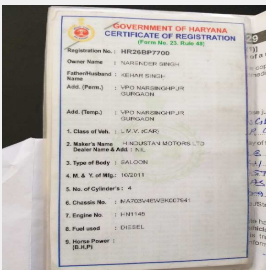 GOVERNMENT OF HARYANA
CERTIFICATE OF REGISTRATION
(Form No. 23, Rule 48)
Registration No. : HR26BP7700
Owner Name : NARENDER SINGH
Father/Husband : KEHAR SINGH
Name
Add. (Perm.) : VPO NARSINGHPUR
GURGAON
Add. (Temp.) : VPO NARSINGHPUR
GURGAON
1. Class of Veh. : L.M.V. (CAR)
2. Maker's Name : HINDUSTAN MOTORS LTD
Dealer Name & Add. : NIL
3. Type of Body : SALOON
4. M. & Y. of Mfg.: 10/2011
5. No. of Cylinder's : 4
6. Chassis No. :
7. Engine No. : HN1145
8. Fuel used : DIESEL
9. Horse Power :
(B.H.P)
29